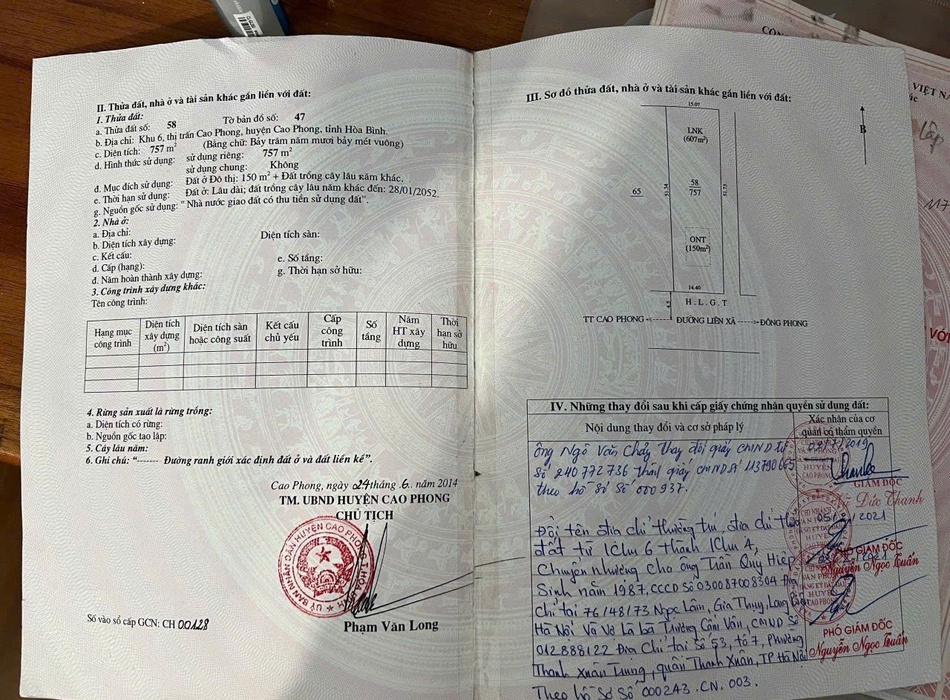 II. Thửa đất, nhà ở và tài sản khác gắn liền với đất:
1. Thửa đất:
a. Thửa đất số: 58 Tờ bản đồ số: 47
b. Địa chỉ: Khu 6, thị trấn Cao Phong, huyện Cao Phong, tỉnh Hòa Bình.
c. Diện tích: 757 m² (Bằng chữ: Bảy trăm năm mươi bảy mét vuông)
d. Hình thức sử dụng: sử dụng riêng: 757 m²
sử dụng chung: Không
đ. Mục đích sử dụng: Đất ở Đô thị: 150 m² + Đất trồng cây lâu năm khác.
e. Thời hạn sử dụng: Đất ở: Lâu dài; đất trồng cây lâu năm khác đến: 28/01/2052.
g. Nguồn gốc sử dụng: " Nhà nước giao đất có thu tiền sử dụng đất".
2. Nhà ở:
a. Địa chỉ:
b. Diện tích xây dựng: Diện tích sàn:
c. Kết cấu: e. Số tầng:
d. Cấp (hạng): g. Thời hạn sở hữu:
đ. Năm hoàn thành xây dựng:
3. Công trình xây dựng khác:
Tên công trình:
Hạng mục công trình
Diện tích xây dựng (m²)
Diện tích sàn hoặc công suất
Kết cấu chủ yếu
Cấp công trình
Số tầng
Năm HT xây dựng
Thời hạn sở hữu
4. Rừng sản xuất là rừng trồng:
a. Diện tích có rừng:
b. Nguồn gốc tạo lập:
5. Cây lâu năm:
6. Ghi chú: "------- Đường ranh giới xác định đất ở và đất liền kề".
Cao Phong, ngày 24 tháng 6. năm 2014
TM. UBND HUYỆN CAO PHONG
CHỦ TỊCH
Phạm Văn Long
Số vào sổ cấp GCN: CH 00128
III. Sơ đồ thửa đất, nhà ở và tài sản khác gắn liền với đất:
15.07
LNK
(607m²)
B
65
58
757
ONT
(150m²)
14.40
H.L.G.T
TT CAO PHONG ĐƯỜNG LIÊN XÃ ĐÔNG PHONG
IV. Những thay đổi sau khi cấp giấy chứng nhận quyền sử dụng đất:
Nội dung thay đổi và cơ sở pháp lý
Xác nhận của cơ quan có thẩm quyền
Ông Ngô Văn Chảy thay đổi giấy CMND từ
số 240772736 thành giấy CMND số 113790665
theo hồ sơ số 000937.
GIÁM ĐỐC
Đức Thanh
Đổi tên địa chỉ thường trú, địa chỉ thửa
đất từ Khu 6 thành Khu 4,
Chuyển nhượng cho ông Trần Quý Hiệp
Sinh năm 1987, CCCD số 030087008304 Địa
chỉ tại 76/48/73 Ngọc Lâm, Gia Thụy, Long Biên
Hà Nội. Và Vợ là bà Trương Cẩm Vân, CMND số
012888122 Địa chỉ tại số 53, tổ 7, Phường
Thanh Xuân Trung, quận Thanh Xuân, TP Hà Nội
Theo hồ sơ số 000243.CN.003.
PHÓ GIÁM ĐỐC
Nguyễn Ngọc Tuấn
PHÓ GIÁM ĐỐC
Nguyễn Ngọc Tuấn
VIỆT NA